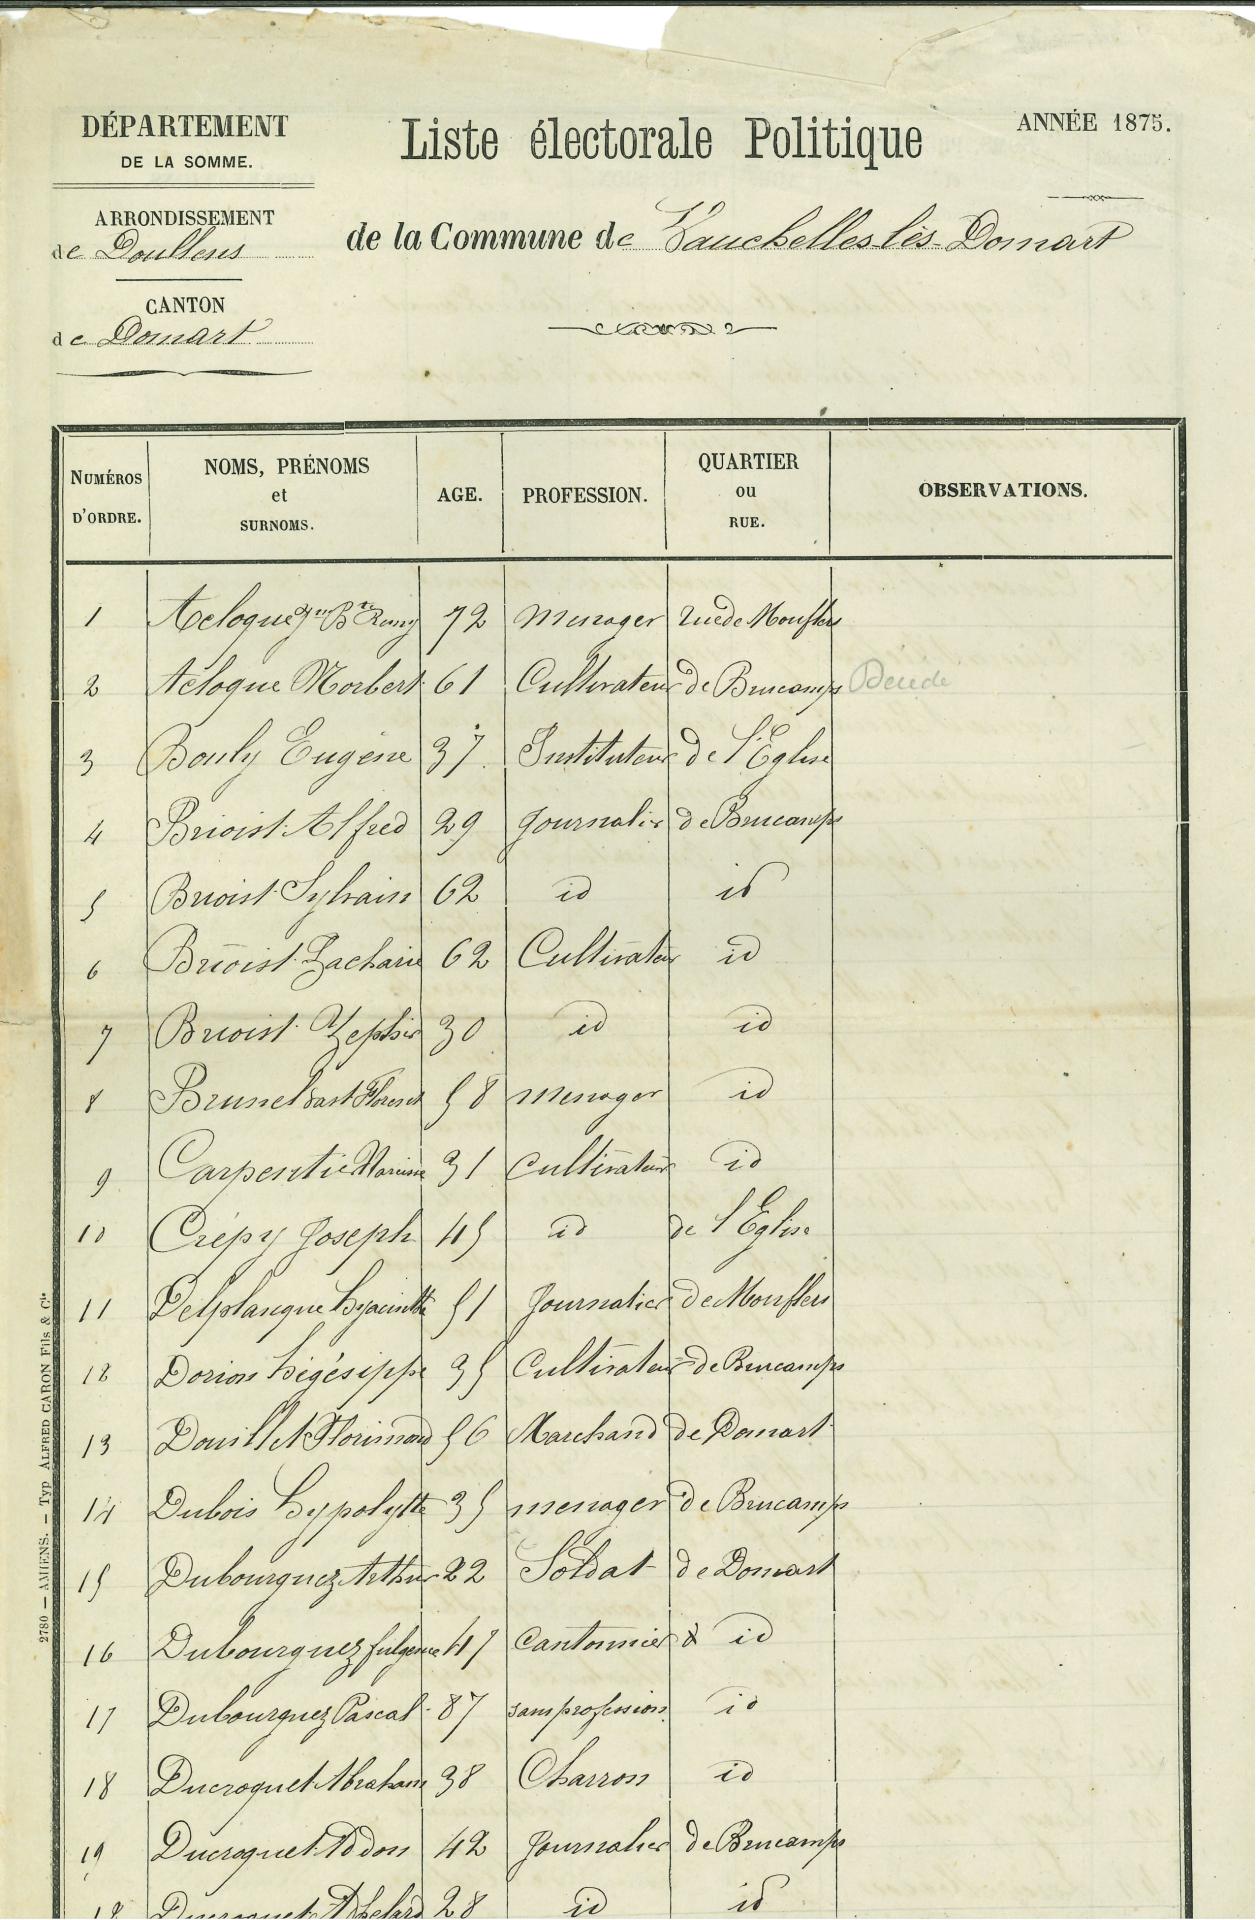 DÉPARTEMENT
DE LA SOMME.
ARRONDISSEMENT
de Doullens
CANTON
de Domart
Liste électorale Politique
de la Commune de Vauchelles-lès-Domart
ANNÉE 1875.
NUMÉROS D'ORDRE. NOMS, PRÉNOMS et SURNOMS. AGE. PROFESSION. QUARTIER ou RUE. OBSERVATIONS.
1 Acloque Jn Bte Remy 72 Menager rue de Mouflers
2 Acloque Norbert 61 Cultivateur de Brucamps
3 Bouly Eugène 37 Instituteur de l'Eglise
4 Brioist Alfred 29 Journalier de Brucamps
5 Brioist Sylvain 62 id id
6 Brioist Zacharie 62 Cultivateur id
7 Brioist Zephir 30 id id
8 Brunel Florent 58 menager id
9 Carpentier Narcisse 31 Cultivateur id
10 Crépy Joseph 45 id de l'Eglise
11 Delplanque hyacinthe 51 Journalier de Mouflers
12 Dorion higésippe 35 Cultivateur de Brucamps
13 Douillet Florimond 56 Marchand de Domart
14 Dubois hypolytte 35 menager de Brucamps
15 Dubourguez Arthur 22 Soldat de Domart
16 Dubourguez fulgence 47 Cantonnier & id
17 Dubourguez Pascal 87 sans profession id
18 Ducroquet Abraham 38 Charron id
19 Ducroquet Addon 42 Journalier de Brucamps
Ducroquet 28 id id
2780 — AMIENS. — Typ ALFRED CARON Fils & Cie